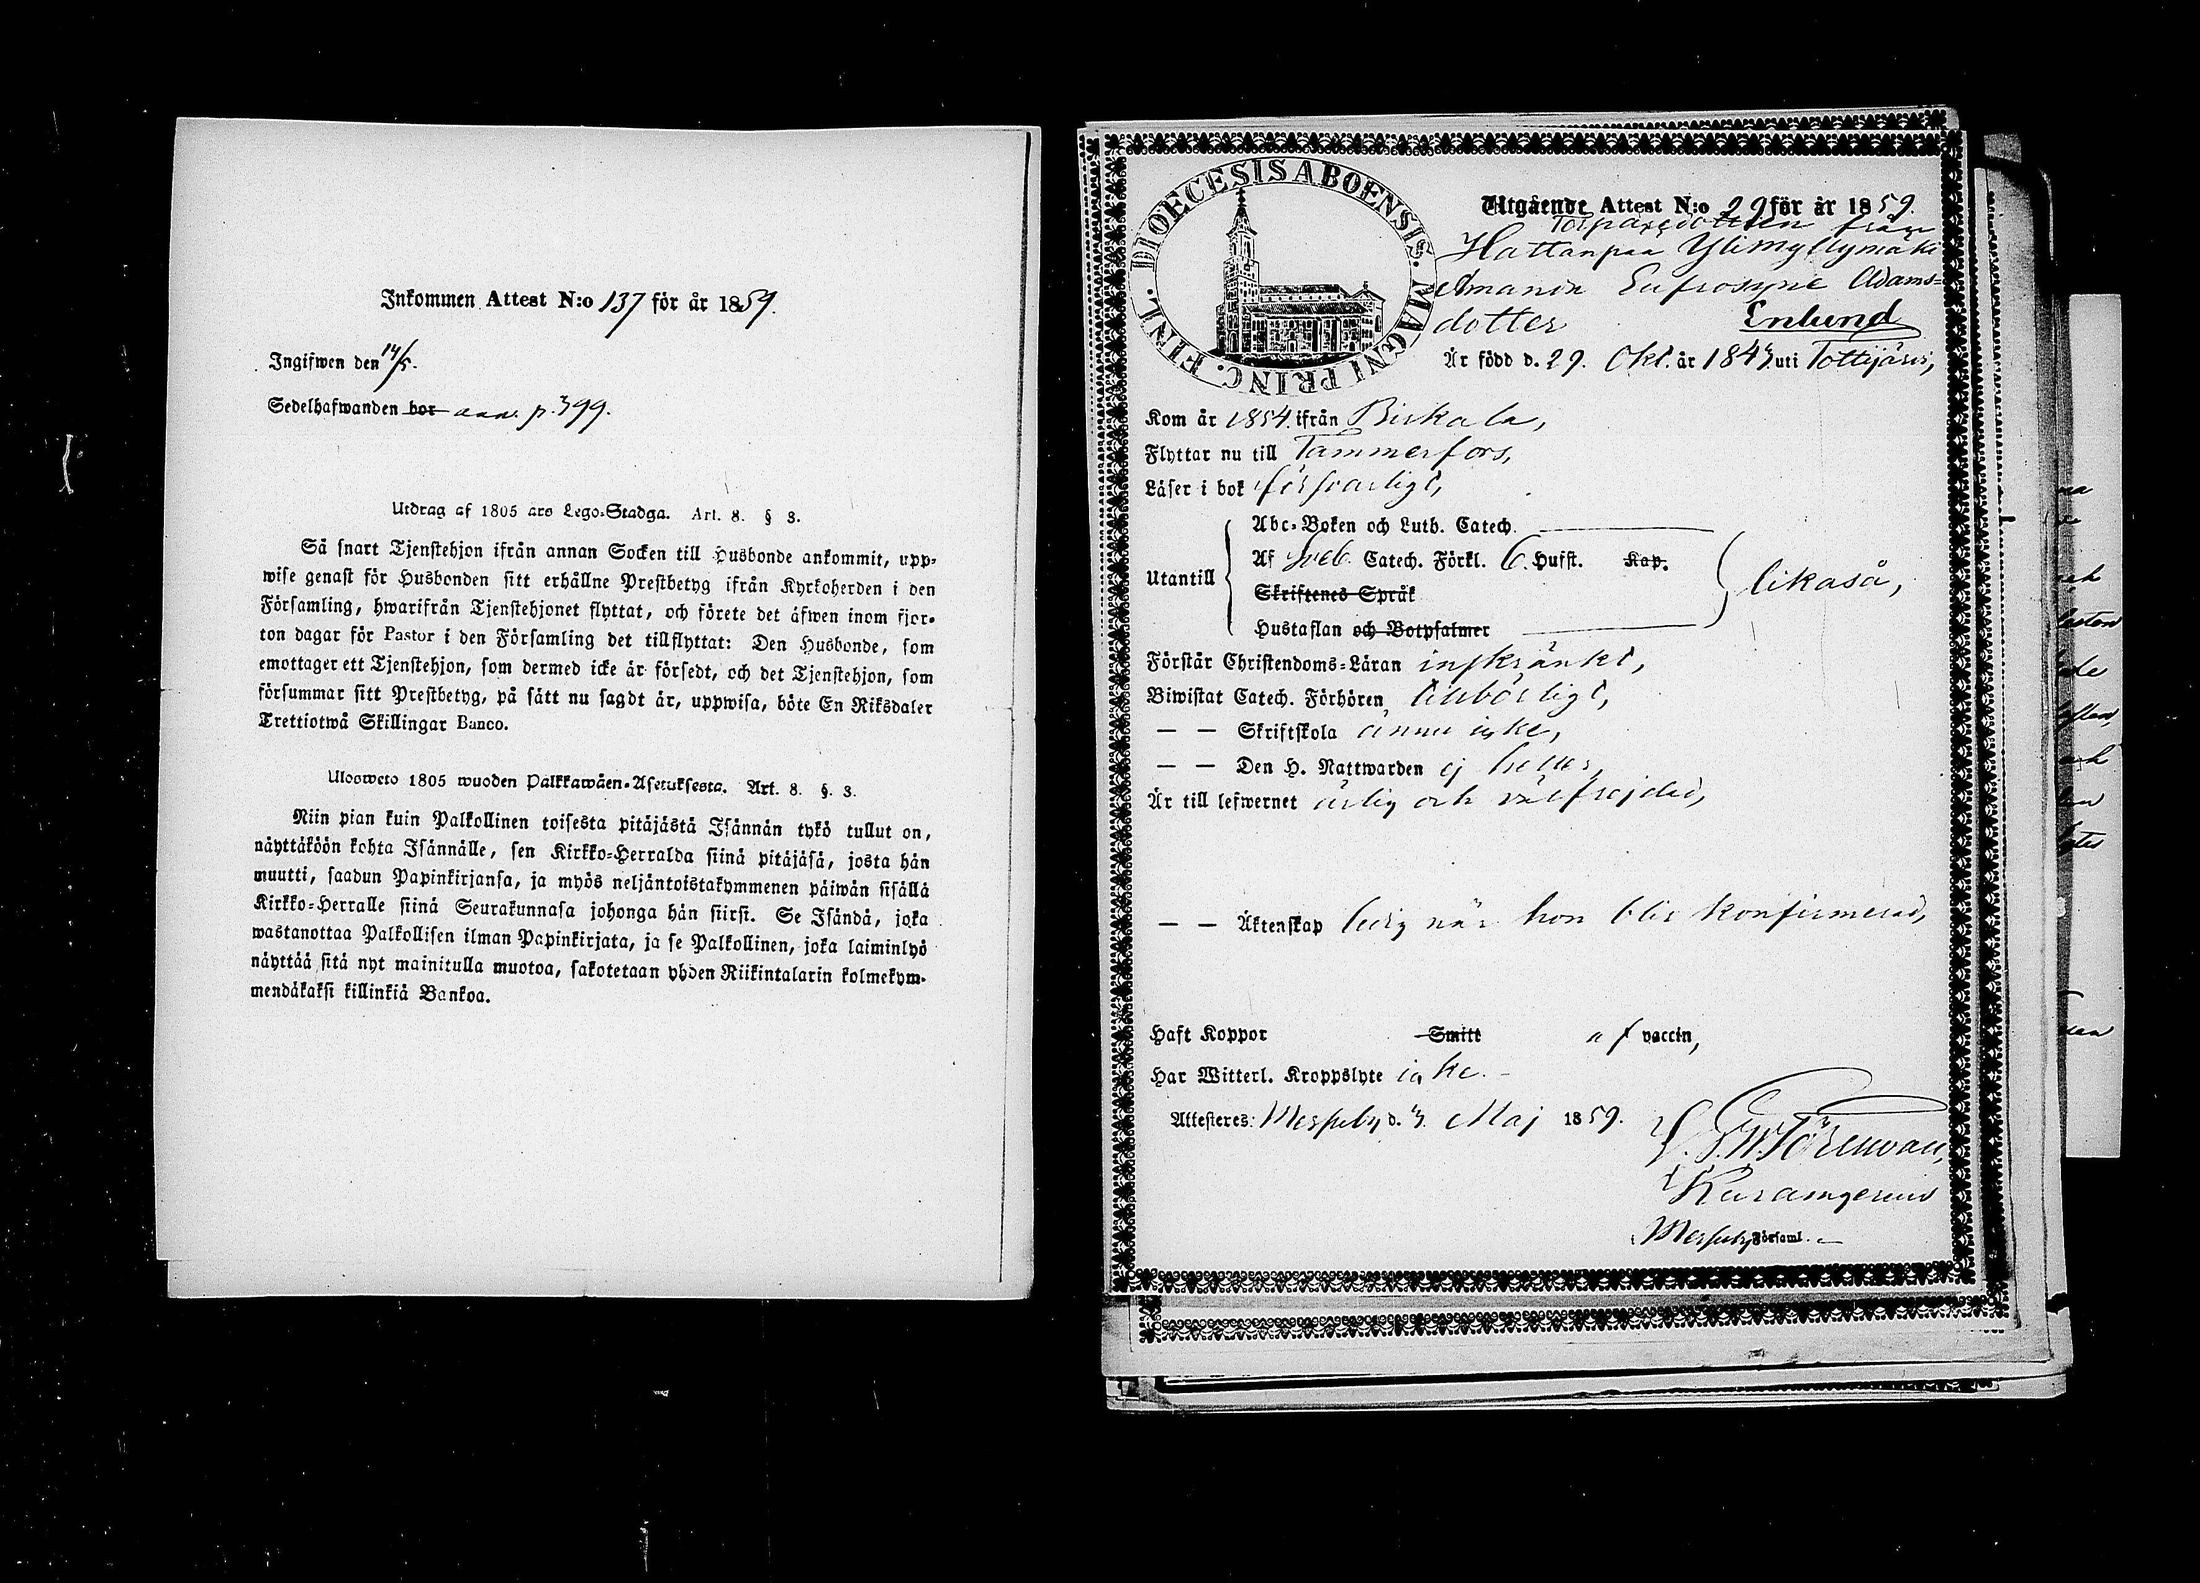 Inkommen Attest N:o 137 för år 1859.
Ingifwen den 14/5.
Sedelhafwanden bor ann. p. 399.
Utdrag af 1805 års Lego-Stadga. Art. 8. § 3.
Så snart Tjenstehjon ifrån annan Socken till Husbonde ankommit, upp-
wise genast för Husbonden sitt erhållne Prestbetyg ifrån Kyrkoherden i den
Församling, hwarifrån Tjenstehjonet flyttat, och förete det äfwen inom fjor-
ton dagar för Pastor i den Församling det tillflyttat: Den Husbonde, som
emottager ett Tjenstehjon, som dermed icke är försedt, och det Tjenstehjon, som
försummar sitt Prestbetyg, på sätt nu sagdt är, uppwisa, böte En Riksdaler
Trettiotwå Skillingar Banco.
Ulosweto 1805 wuoden Palkkawäen-Asetuksesta. Art. 8. §. 3.
Niin pian kuin Palkollinen toisesta pitäjästä Isännän tykö tullut on,
näyttäköön kohta Isännälle, sen Kirkko-Herralda siinä pitäjäsä, josta hän
muutti, saadun Papinkirjansa, ja myös neljäntoistakymmenen päiwän sisällä
Kirkko-Herralle siinä Seurakunnasa johonga hän siirsi. Se Isändä, joka
wastanottaa Palkollisen ilman Papinkirjata, ja se Palkollinen, joka laiminlyö
näyttää sitä nyt mainitulla muotoa, sakotetaan yhden Riikintalarin kolmekym-
mendäkaksi killinkiä Bankoa.
DIOECESIS ABOENSIS. MAGNI PRINC. FINL.
Utgående Attest N:o 29 för år 1859.
Torparedottren från
Hattanpaa Ylimyllymäki
Amanda Eufrosyne Adams-
dotter Enlund
Är född d. 29. Okt. år 1843 uti Tottijärvi,
Kom år 1854 ifrån Birkala,
Flyttar nu till Tammerfors,
Läser i bok försvarligt,
Abc-Boken och Luth. Catech.
Af Sveb. Catech. Förkl. 6. Hufst. Kap.
Utantill likaså,
Skriftenes Språk
Hustaflan och Botpsalmer
Förstår Christendoms-Läran inskränkt,
Biwistat Catech. Förhören tillbörligt,
— — Skriftskola ännu icke,
— — Den H. Nattwarden ej heller,
Är till lefwernet ärlig och välfrejdad,
— — Äktenskap ledig när hon blir konfirmerad,
Haft Koppor Smitt af vaccin,
Har Witterl. Kroppslyte icke.
Attesteres: Messuby d. 3. Maj 1859.
Messuby Församl.